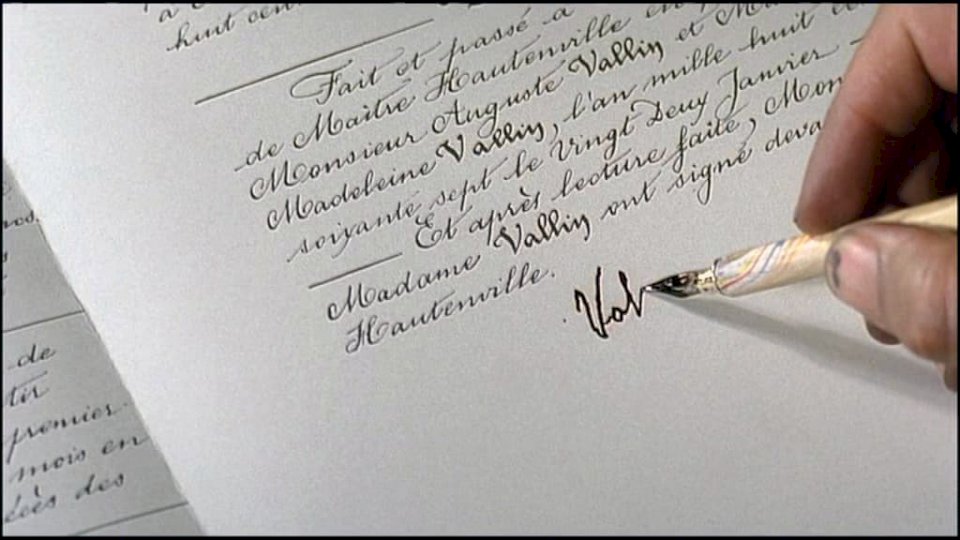 huit cent
Fait et passé à
de Maître Hautenville en
Monsieur Auguste Vallin et
Madeleine Vallin, l'an mille huit
soixante sept le Vingt Deux Janvier
Et après lecture faite, Mon
Madame Vallin ont signé deva
Hautenville.
Val
de
tir
premier
mois en
décès des